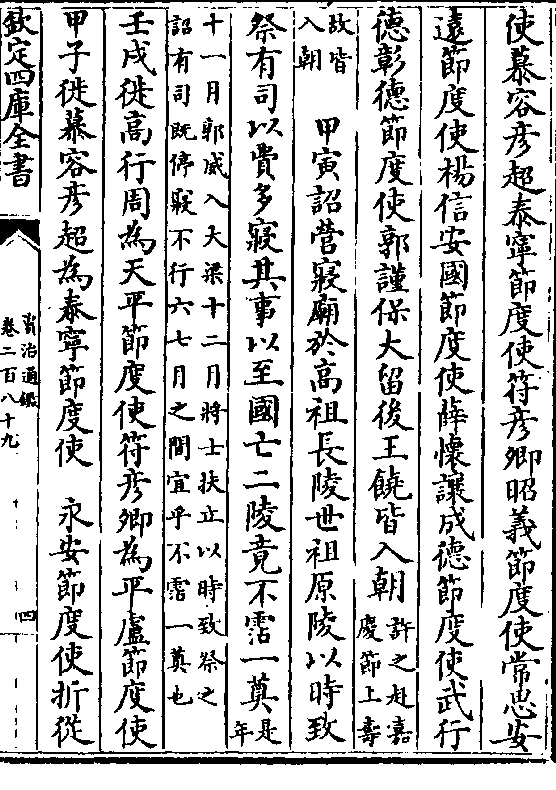 使慕容彦超泰寧節度使符彦卿昭義節度使常思安
遠節度使楊信安國節度使薛懷讓成德節度使武行
德彰德節度使郭謹保大留後王饒皆入朝許之赴嘉慶節上壽
故皆入朝 甲寅詔營寢廟於高祖長陵世祖原陵以時致
祭有司以費多寢其事以至國亡二陵竟不霑一奠是年
十一月郭威入大梁十二月將士扶立以時致祭之
詔有司既停寢不行六七月之間宜乎不霑一奠也
壬戌徙高行周為天平節度使符彦卿為平盧節度使
甲子徙慕容彦超為泰寧節度使 永安節度使折從
欽定四庫全書
資治通鑑
卷二百八十九
四